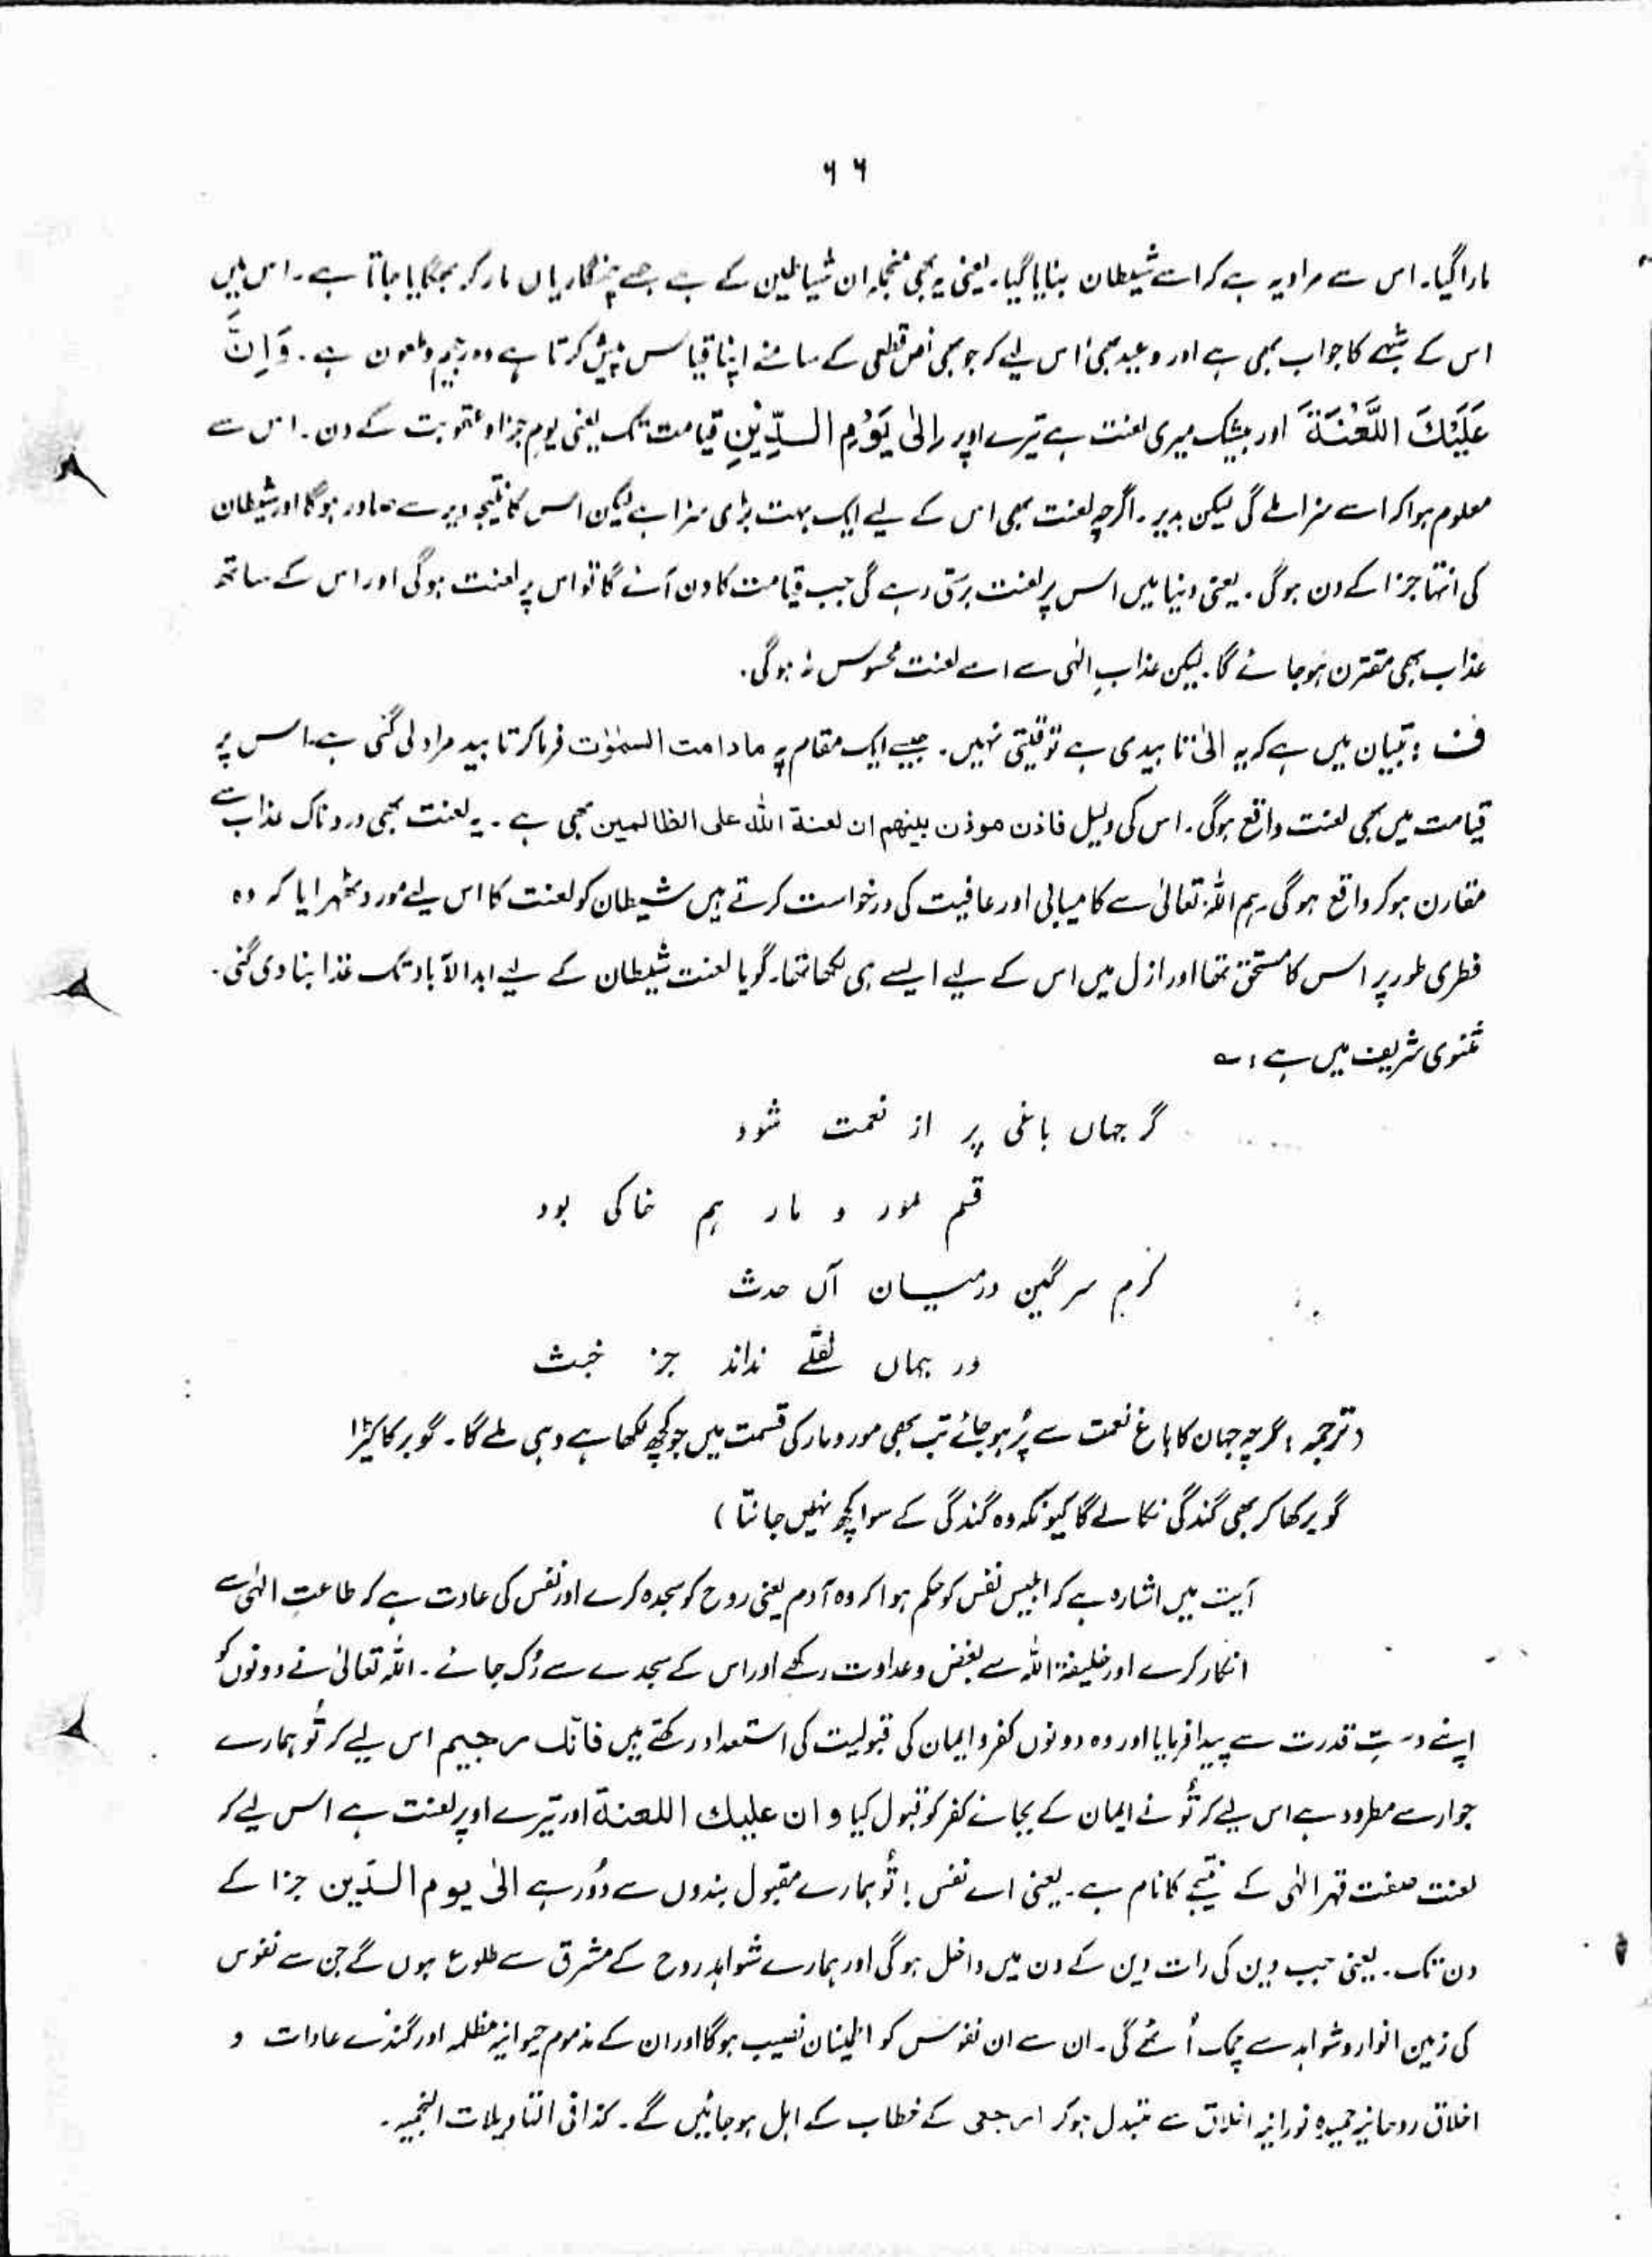 ۶۶
مارا گیا۔ اس سے مراد یہ ہے کہ اسے شیطان بنایا گیا۔ یعنی یہ بھی منجملہ ان شیاطین کے ہے جسے چنگاریاں مار کر بھگایا جاتا ہے۔ اس میں
اس کے شبہے کا جواب بھی ہے اور وعید بھی اس لیے کہ جو بھی نص قطعی کے سامنے اپنا قیاس پیش کرتا ہے وہ رجیم و ملعون ہے۔ وَاِنَّ
عَلَیْكَ اللَّعْنَةَ اور بیشک میری لعنت ہے تیرے اوپر اِلٰی یَوْمِ الدِّیْنِ قیامت تک یعنی یومِ جزا و عقوبت کے دن۔ اس سے
معلوم ہوا کہ اسے سزا ملے گی لیکن بدیر۔ اگرچہ لعنت بھی اس کے لیے ایک بہت بڑی سزا ہے لیکن اس کا نتیجہ دیر سے صادر ہوگا اور شیطان
کی انتہا جزا کے دن ہوگی۔ یعنی دنیا میں اس پر لعنت برستی رہے گی جب قیامت کا دن آئے گا تو اس پر لعنت ہوگی اور اس کے ساتھ
عذاب بھی مقترن ہو جائے گا۔ لیکن عذابِ الٰہی سے اسے لعنت محسوس نہ ہوگی۔
ف : تبیان میں ہے کہ یہ الیٰ تابیدی ہے توقیتی نہیں۔ جیسے ایک مقام پہ مادامت السمٰوٰت فرما کر تابید مراد لی گئی ہے۔ اس پر
قیامت میں بھی لعنت واقع ہوگی۔ اس کی دلیل فاذن موذن بینھم ان لعنة اللہ علی الظالمین بھی ہے۔ یہ لعنت بھی دردناک عذاب سے
مقارن ہو کر واقع ہوگی۔ ہم اللہ تعالیٰ سے کامیابی اور عافیت کی درخواست کرتے ہیں شیطان کو لعنت کا اس لیے مورد ٹھہرایا کہ وہ
فطری طور پر اس کا مستحق تھا اور ازل میں اس کے لیے ایسے ہی لکھا تھا۔ گویا لعنت شیطان کے لیے ابدالآباد تک غذا بنا دی گئی۔
مثنوی شریف میں ہے : ؎
گر جہاں باغی پر از نعمت شود
قسم مور و مار ہم خاکی بود
کرم سرگین درمیان آں حدث
در جہاں نقلے نداند جز خبث
(ترجمہ : گرچہ جہان کا باغ نعمت سے پُر ہو جائے تب بھی مور و مار کی قسمت میں جو کچھ لکھا ہے وہی ملے گا۔ گوبر کا کیڑا
گوبر کھا کر بھی گندگی نکالے گا کیونکہ وہ گندگی کے سوا کچھ نہیں جانتا)
آیت میں اشارہ ہے کہ ابلیس نفس کو حکم ہوا کہ وہ آدم یعنی روح کو سجدہ کرے اور نفس کی عادت ہے کہ طاعتِ الٰہی سے
انکار کرے اور خلیفۃ اللہ سے بغض و عداوت رکھے اور اس کے سجدے سے رُک جائے۔ اللہ تعالیٰ نے دونوں کو
اپنے دستِ قدرت سے پیدا فرمایا اور وہ دونوں کفر و ایمان کی قبولیت کی استعداد رکھتے ہیں فانّك رجیم اس لیے کہ تُو ہمارے
جوار سے مطرود ہے اس لیے کہ تُو نے ایمان کے بجائے کفر کو قبول کیا و ان علیك اللعنة اور تیرے اوپر لعنت ہے اس لیے کہ
لعنت صفت قہر الٰہی کے نتیجے کا نام ہے۔ یعنی اے نفس ! تُو ہمارے مقبول بندوں سے دُور ہے الیٰ یوم الدّین جزا کے
دن تک۔ یعنی جب دین کی رات دین کے دن میں داخل ہوگی اور ہمارے شواہد روح کے مشرق سے طلوع ہوں گے جن سے نفوس
کی زمین انوار و شواہد سے چمک اُٹھے گی۔ ان سے ان نفوس کو اطمینان نصیب ہوگا اور ان کے مذموم حیوانیہ مظلمہ اور گندے عادات و
اخلاق روحانیہ حمیدہ نورانیہ اخلاق سے متبدل ہو کر ارجعی کے خطاب کے اہل ہو جائیں گے۔ کذا فی التاویلات النجمیہ۔